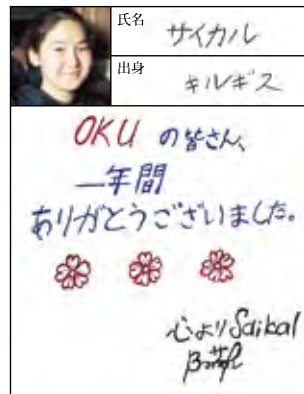 氏名 サイカル
出身 キルギス
OKU の皆さん、
一年間
ありがとうございました。
心より Saikal